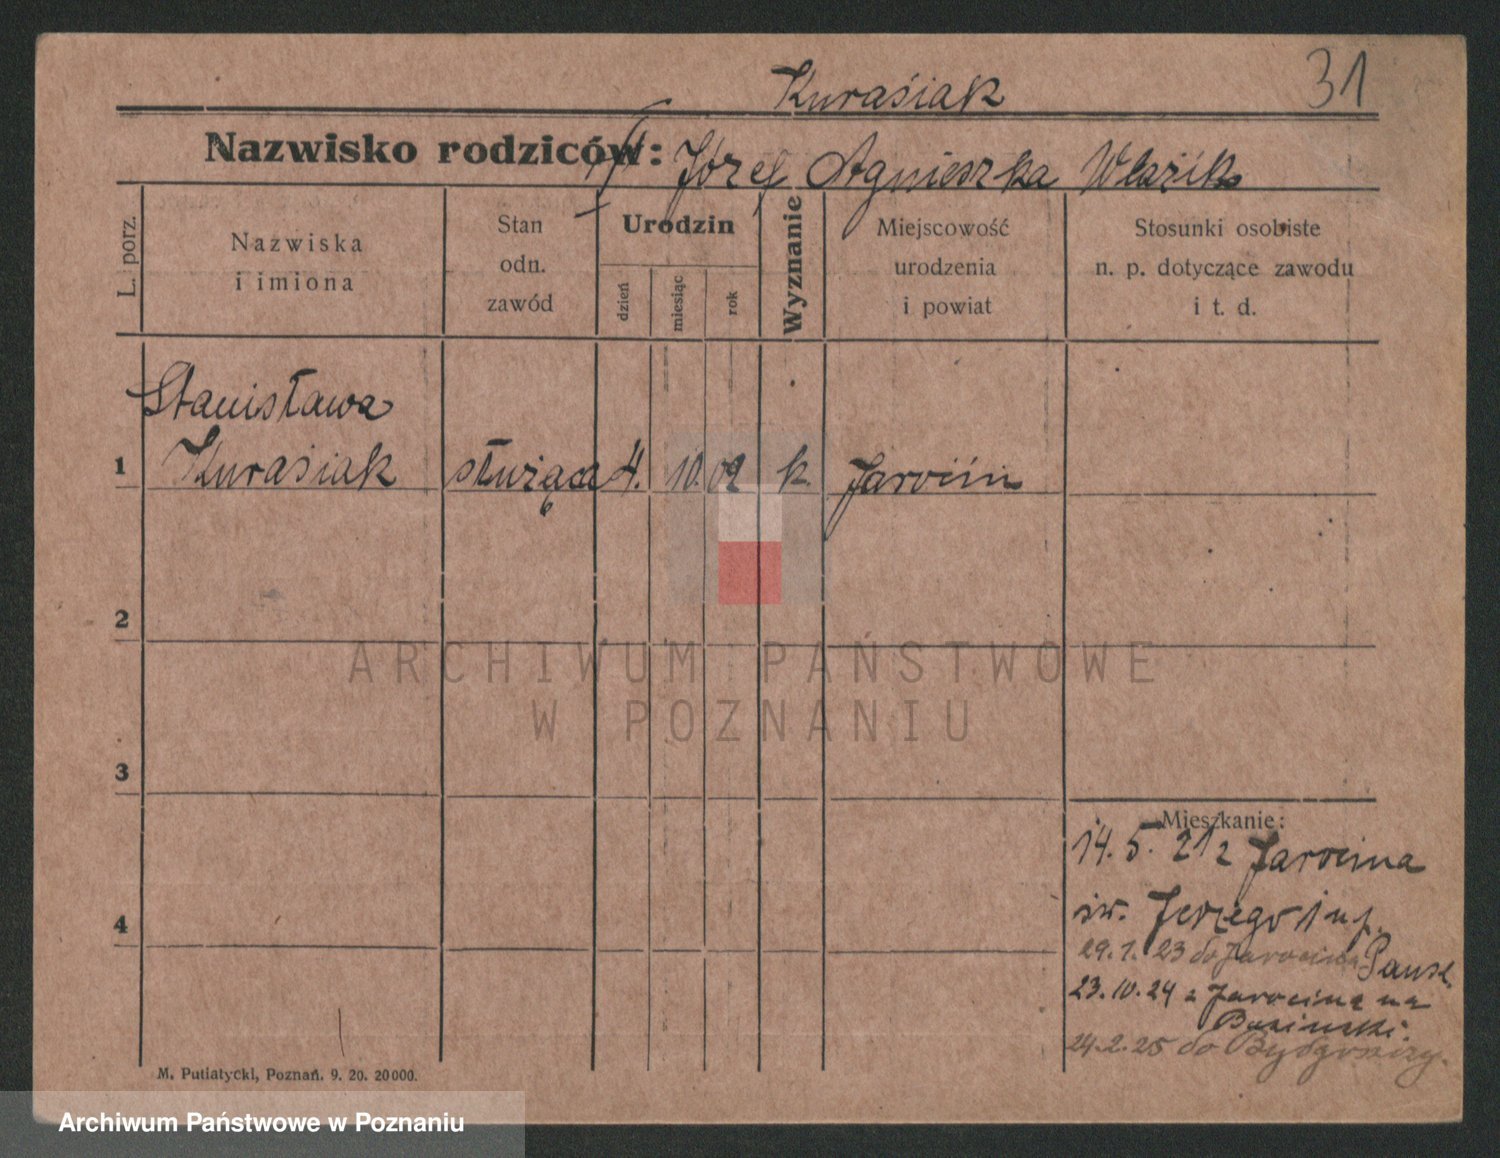 31
Kuraśiak
Nazwisko rodziców: Józef Agnieszka Właźik
L. porz.
Nazwiska
i imiona
Stan
odn.
zawód
Urodzin
dzień
miesiąc
rok
Wyznanie
Miejscowość
urodzenia
i powiat
Stosunki osobiste
n. p. dotyczące zawodu
i t. d.
Stanisława
1 Kuraśiak służąca 4. 10. 02 k. Jarocin
2
ARCHIWUM PAŃSTWOWE
W POZNANIU
3
Mieszkanie:
14. 5. 21 z Jarocina
św. Jerzego 1 u p.
4
29. 1. 23 do Jarocina
23. 10. 24 z Jarocina na
24. 2. 25 do Bydgoszczy.
M. Putiatycki, Poznań. 9. 20. 20000.
Archiwum Państwowe w Poznaniu